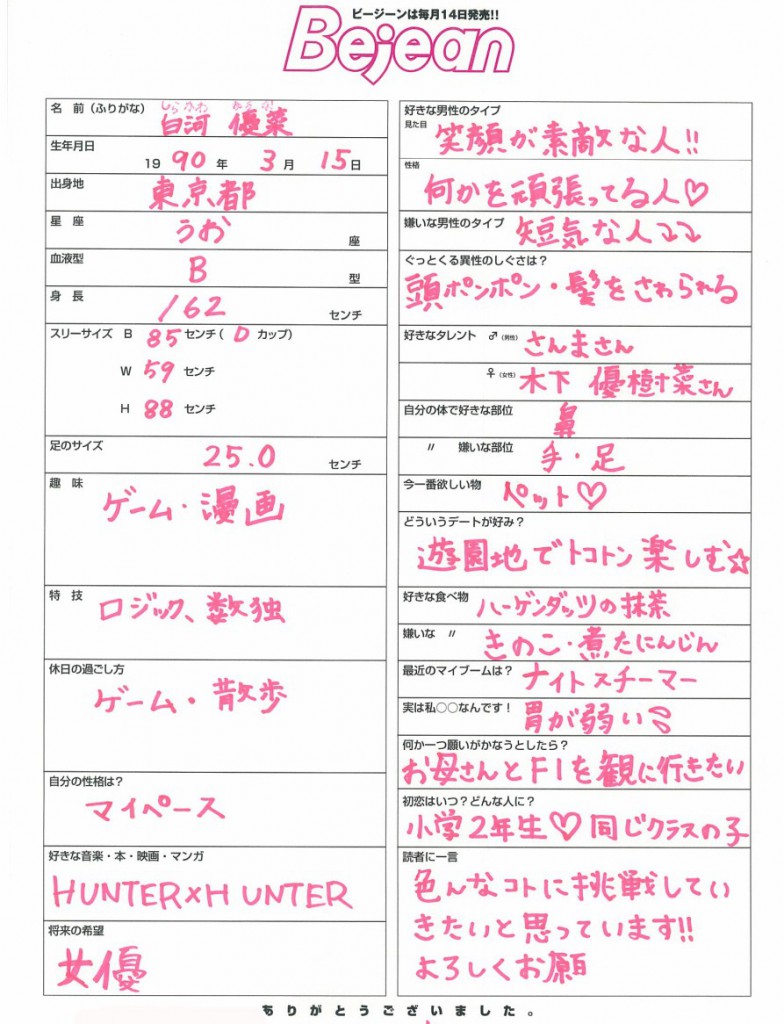 ビージーンは毎月14日発売!!
Bejean
名 前(ふりがな) しらかわ 白河 優菜
生年月日
1990年 3月 15日
出身地
東京都
星 座
うお 座
血液型
B 型
身 長
162 センチ
スリーサイズ B 85 センチ( D カップ)
W 59 センチ
H 88 センチ
足のサイズ
25.0 センチ
趣 味
ゲーム・漫画
特 技
ロジック、数独
休日の過ごし方
ゲーム・散歩
自分の性格は?
マイペース
好きな音楽・本・映画・マンガ
HUNTER×HUNTER
将来の希望
女優
好きな男性のタイプ
見た目
笑顔が素敵な人!!
性格
何かを頑張ってる人♡
嫌いな男性のタイプ 短気な人⤵⤵
ぐっとくる異性のしぐさは?
頭ポンポン・髪をさわられる
好きなタレント ♂(男性) さんまさん
♀(女性) 木下 優樹菜さん
自分の体で好きな部位 鼻
〃 嫌いな部位 手・足
今一番欲しい物 ペット♡
どういうデートが好み?
遊園地でトコトン楽しむ☆
好きな食べ物 ハーゲンダッツの抹茶
嫌いな 〃 きのこ・煮たにんじん
最近のマイブームは? ナイトスチーマー
実は私○○なんです! 胃が弱い
何か一つ願いがかなうとしたら?
お母さんとF1を観に行きたい
初恋はいつ?どんな人に?
小学2年生♡同じクラスの子
読者に一言
色んなコトに挑戦してい
きたいと思っています!!
よろしくお願
ありがとうございました。